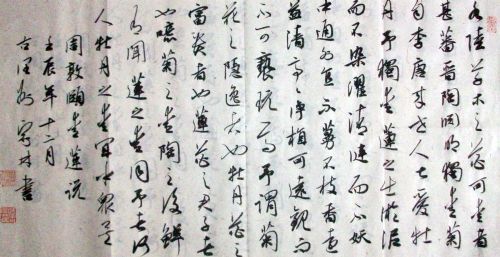 水陸草木之花可愛者
甚蕃晉陶淵明獨愛菊
自李唐來世人甚愛牡
丹予獨愛蓮之出淤泥
而不染濯清漣而不妖
中通外直不蔓不枝香遠
益清亭亭淨植可遠觀而
不可褻玩焉予謂菊
花之隱逸者也牡丹花之
富貴者也蓮花之君子者
也噫菊之愛陶之後鮮
有聞蓮之愛同予者何
人牡丹之愛宜乎眾矣
周敦頤愛蓮說
壬辰年十二月
書